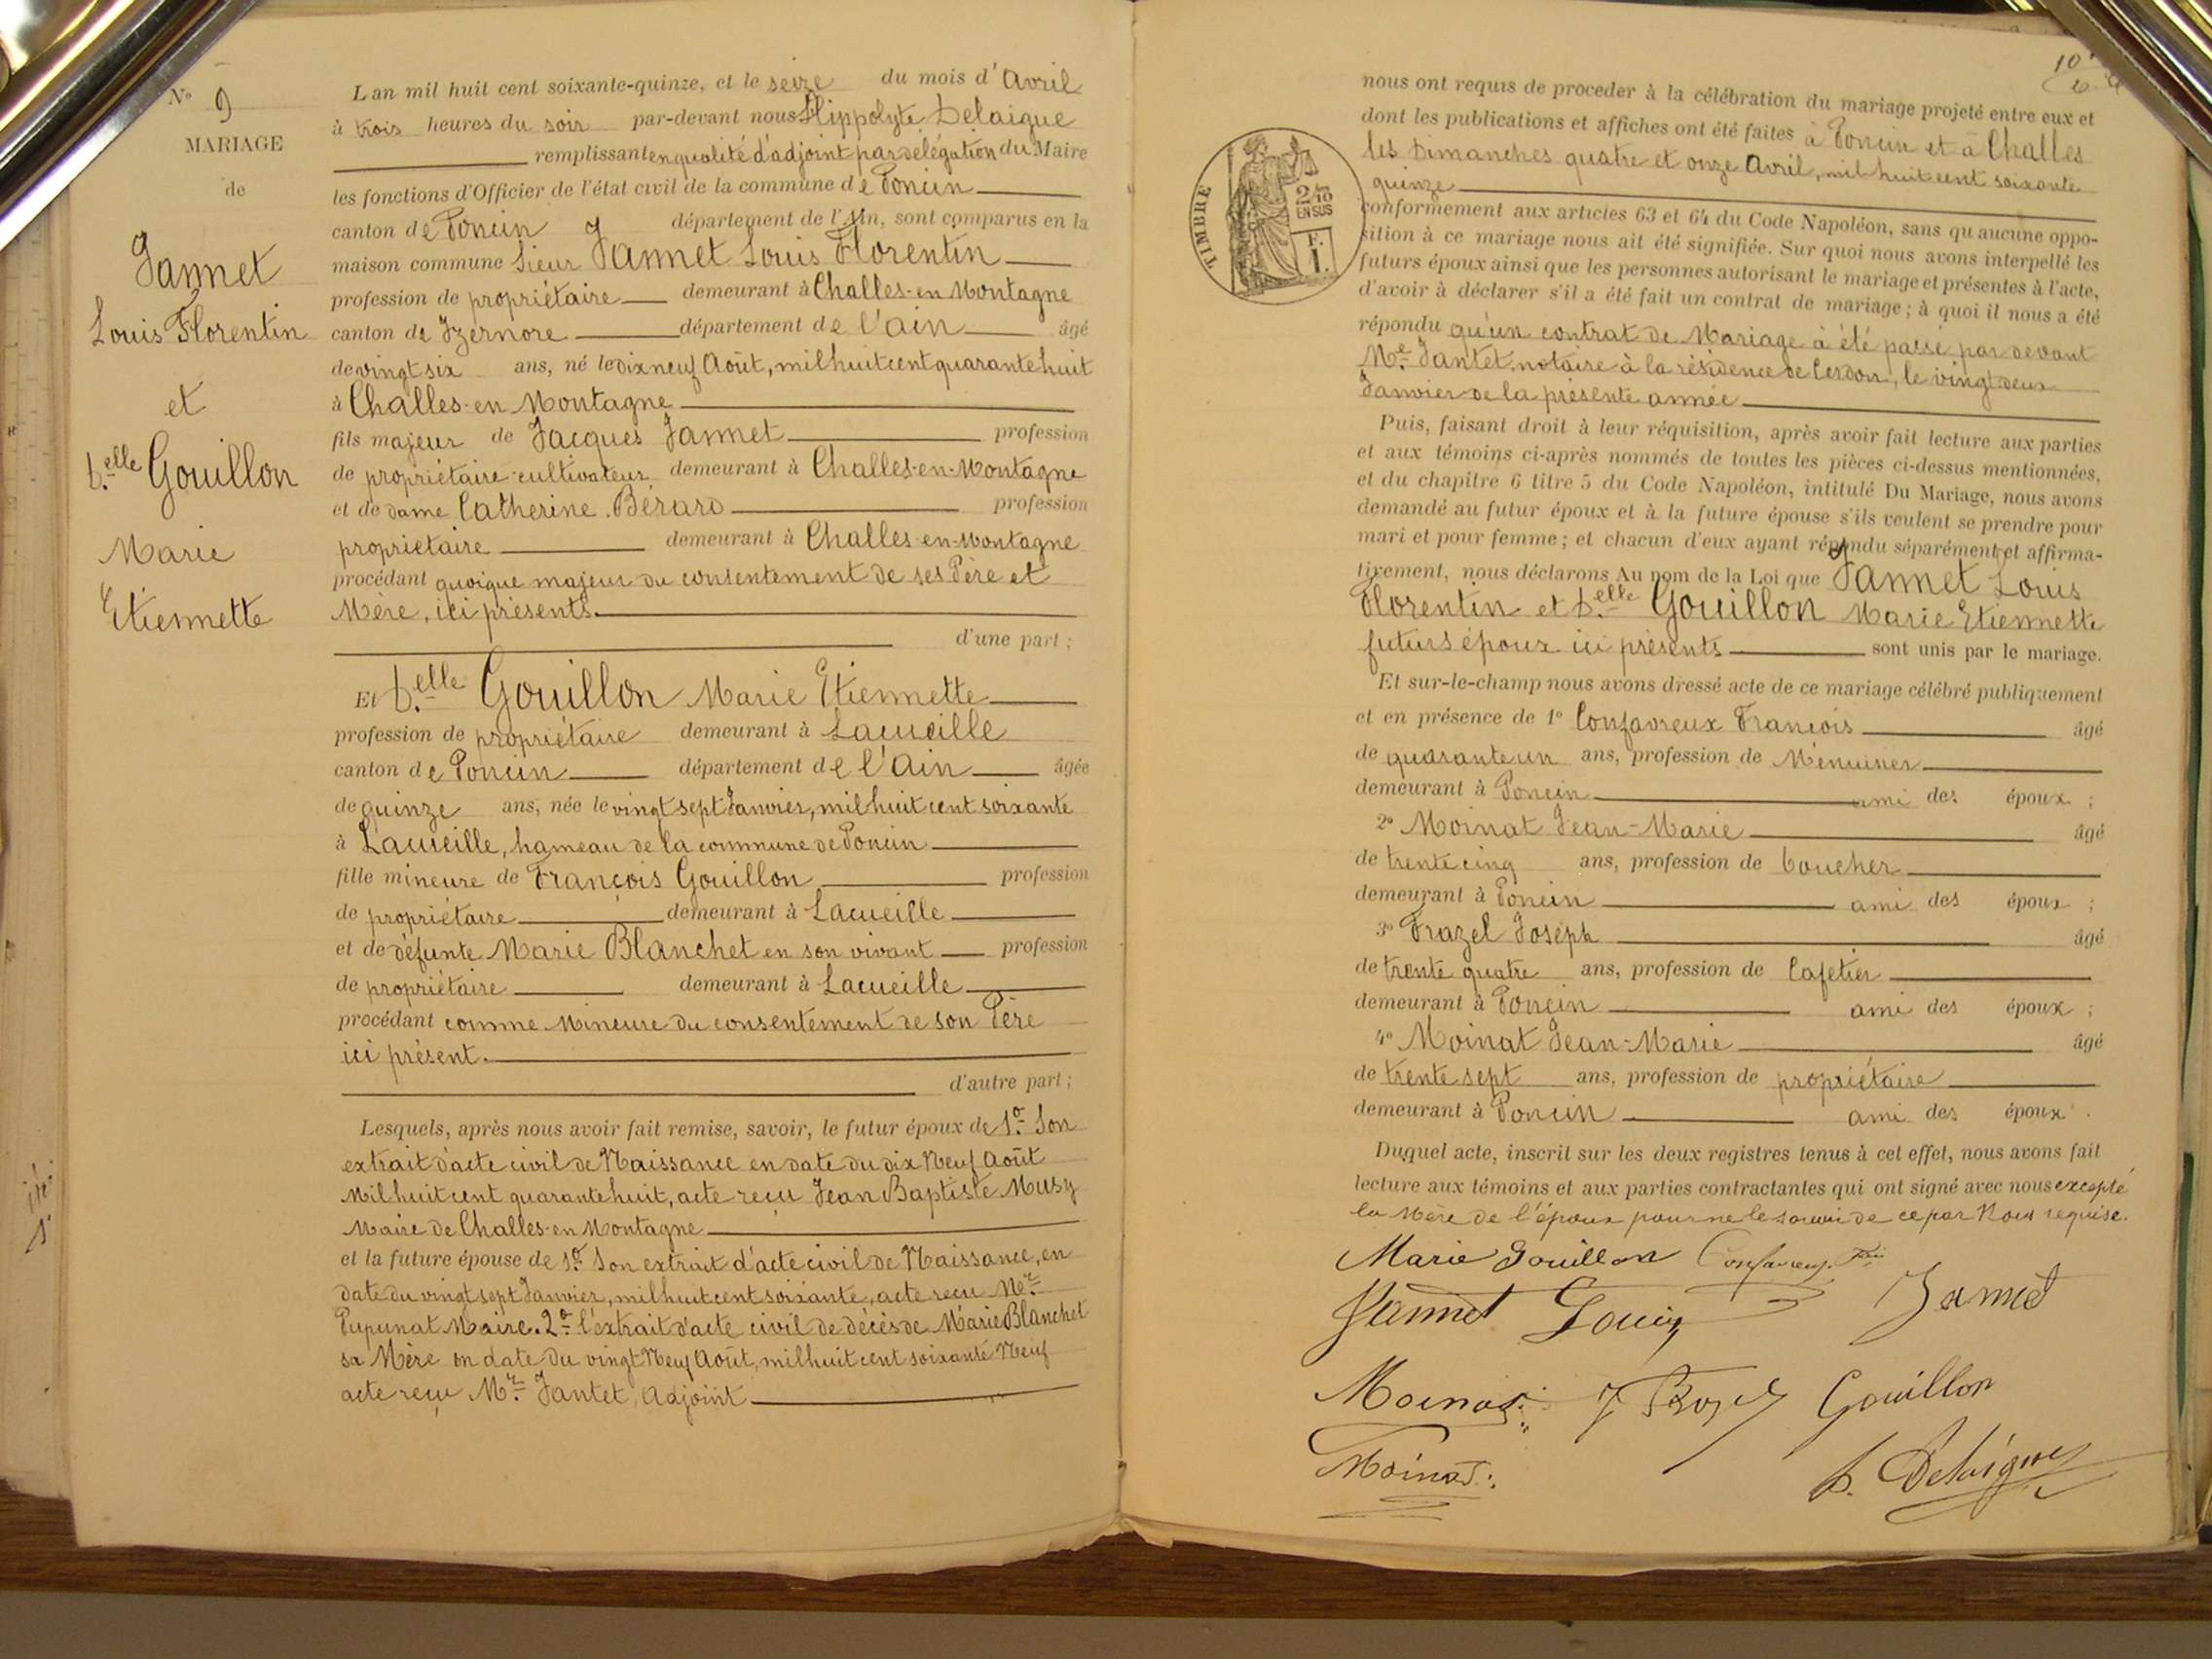 N° 9
MARIAGE
de
Jannet
Louis Florentin
et
D.elle Gouillon
Marie
Etiennette
L'an mil huit cent soixante-quinze, et le seize du mois d'Avril
à trois heures du soir par-devant nous Hippolyte Delaigue
remplissant en qualité d'adjoint par délégation du Maire
les fonctions d'Officier de l'état civil de la commune de Poncin
canton de Poncin département de l'Ain, sont comparus en la
maison commune Sieur Jannet Louis Florentin
profession de propriétaire demeurant à Challes-en Montagne
canton de Izernore département de l'ain âgé
de vingt six ans, né le dix neuf Août, mil huit cent quarante huit
à Challes-en Montagne
fils majeur de Jacques Jannet profession
de propriétaire-cultivateur demeurant à Challes-en-Montagne
et de dame Catherine Bérard profession
propriétaire demeurant à Challes-en-Montagne
procédant quoique majeur du consentement de ses Père et
Mère, ici présents.
d'une part ;
Et D.elle Gouillon Marie Etiennette
profession de propriétaire demeurant à Lacueille
canton de Poncin département de l'Ain âgée
de quinze ans, née le vingt sept Janvier, mil huit cent soixante
à Lacueille, hameau de la commune de Poncin
fille mineure de François Gouillon profession
de propriétaire demeurant à Lacueille
et de défunte Marie Blanchet en son vivant profession
de propriétaire demeurant à Lacueille
procédant comme Mineure du consentement de son Père
ici présent.
d'autre part ;
Lesquels, après nous avoir fait remise, savoir, le futur époux de 1° Son
extrait d'acte civil de Naissance en date du dix Neuf Août
Mil huit cent quarante huit, acte reçu Jean Baptiste Musy
Maire de Challes-en Montagne
et la future épouse de 1° Son extrait d'acte civil de Naissance, en
date du vingt sept Janvier, mil huit cent soixante, acte reçu Mr.
Pupunat Maire. 2° l'extrait d'acte civil de décès de Marie Blanchet
sa Mère en date du vingt Neuf Août, mil huit cent soixante Neuf
acte reçu Mr. Jantet, Adjoint
10
TIMBRE
2/10
EN SUS
F.
1.
nous ont requis de procéder à la célébration du mariage projeté entre eux et
dont les publications et affiches ont été faites à Poncin et à Challes
les Dimanches quatre et onze Avril, mil huit cent soixante
quinze
conformément aux articles 63 et 64 du Code Napoléon, sans qu'aucune oppo-
sition à ce mariage nous ait été signifiée. Sur quoi nous avons interpellé les
futurs époux ainsi que les personnes autorisant le mariage et présentes à l'acte,
d'avoir à déclarer s'il a été fait un contrat de mariage ; à quoi il nous a été
répondu qu'un contrat de Mariage à été passé par devant
Me. Jantet, notaire à la résidence de Cerdon, le vingt deux
Janvier de la présente année
Puis, faisant droit à leur réquisition, après avoir fait lecture aux parties
et aux témoins ci-après nommés de toutes les pièces ci-dessus mentionnées,
et du chapitre 6 titre 5 du Code Napoléon, intitulé Du Mariage, nous avons
demandé au futur époux et à la future épouse s'ils veulent se prendre pour
mari et pour femme ; et chacun d'eux ayant répondu séparément et affirma-
tivement, nous déclarons Au nom de la Loi que Jannet Louis
Florentin et D.elle Gouillon Marie Etiennette
futurs époux ici présents sont unis par le mariage.
Et sur-le-champ nous avons dressé acte de ce mariage célébré publiquement
et en présence de 1° Confavreux François âgé
de quarante un ans, profession de Menuisier
demeurant à Poncin ami des époux ;
2° Moinat Jean-Marie âgé
de trente cinq ans, profession de boucher
demeurant à Poncin ami des époux ;
3° Frazel Joseph âgé
de trente quatre ans, profession de Cafetier
demeurant à Poncin ami des époux ;
4° Moinat Jean-Marie âgé
de trente sept ans, profession de propriétaire
demeurant à Poncin ami des époux.
Duquel acte, inscrit sur les deux registres tenus à cet effet, nous avons fait
lecture aux témoins et aux parties contractantes qui ont signé avec nous excepté
la Mère de l'époux pour ne le savoir de ce par Nous requise.
Marie Gouillon Confavreux
Jannet Louis Jannet
Moinat Gouillon
Moinat. Delaigue